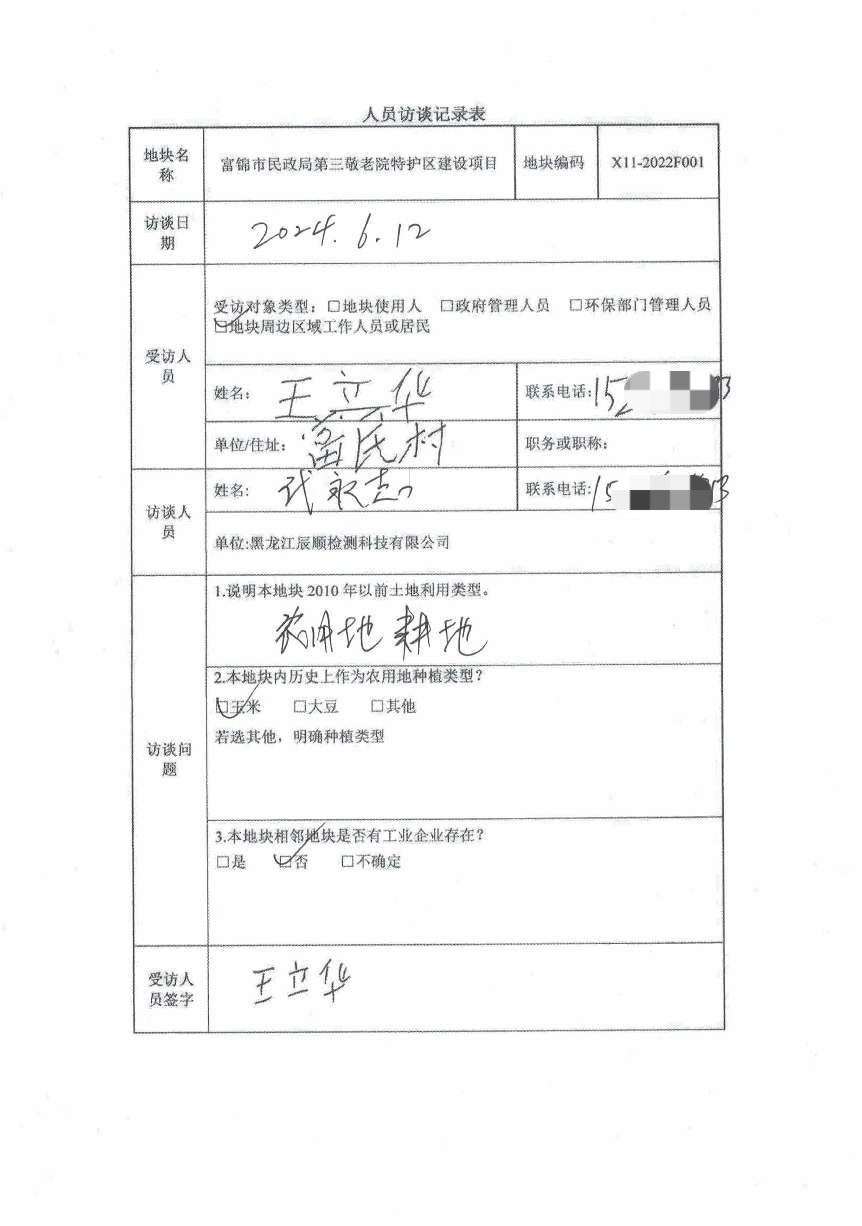 人员访谈记录表
地块名称 富锦市民政局第三敬老院特护区建设项目 地块编码 X11-2022F001
访谈日期 2024.6.12
受访人员
受访对象类型：□地块使用人 □政府管理人员 □环保部门管理人员
☑地块周边区域工作人员或居民
姓名：王立华 联系电话：152
单位/住址：富民村 职务或职称：
访谈人员
姓名：代永志 联系电话：15
单位:黑龙江辰顺检测科技有限公司
访谈问题
1.说明本地块 2010 年以前土地利用类型。
农用地 耕地
2.本地块内历史上作为农用地种植类型？
☑玉米 □大豆 □其他
若选其他，明确种植类型
3.本地块相邻地块是否有工业企业存在？
□是 ☑否 □不确定
受访人员签字 王立华